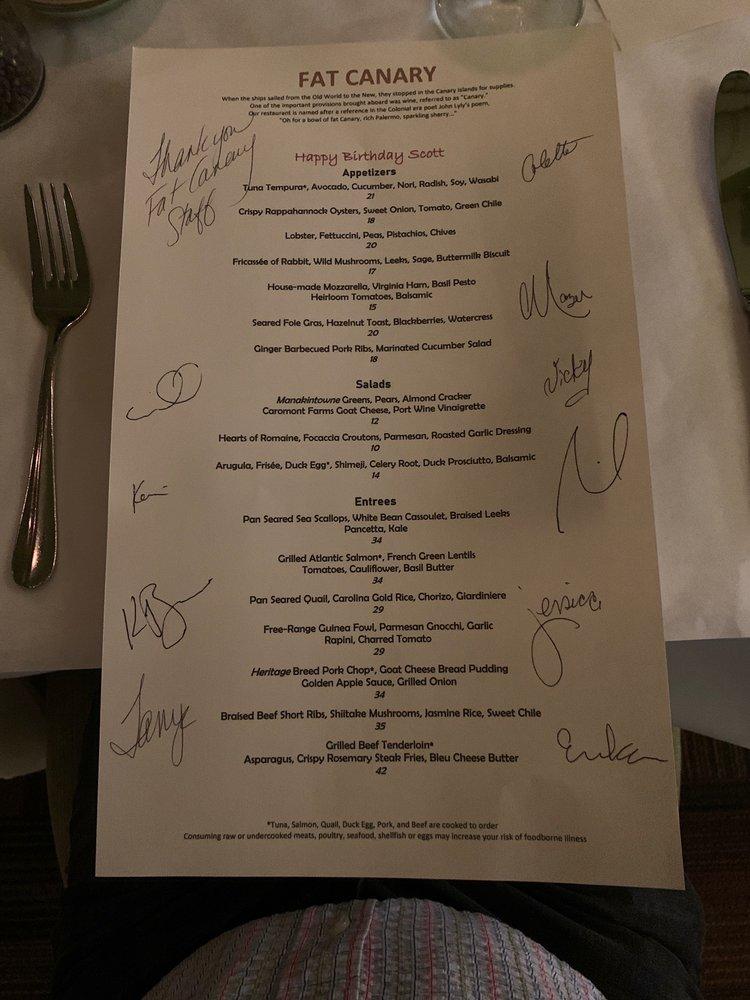 FAT CANARY
When the ships sailed from the Old World to the New, they stopped in the Canary Islands for supplies.
One of the important provisions brought aboard was wine, referred to as "Canary."
Our restaurant is named after a reference in the Colonial era poet John Lyly's poem,
"Oh for a bowl of fat Canary, rich Palermo, sparkling sherry..."
Thank you
Fat Canary
Staff
Happy Birthday Scott
Colette
Appetizers
Tuna Tempura*, Avocado, Cucumber, Nori, Radish, Soy, Wasabi
21
Crispy Rappahannock Oysters, Sweet Onion, Tomato, Green Chile
18
Lobster, Fettuccini, Peas, Pistachios, Chives
20
Fricassée of Rabbit, Wild Mushrooms, Leeks, Sage, Buttermilk Biscuit
17
House-made Mozzarella, Virginia Ham, Basil Pesto
Heirloom Tomatoes, Balsamic
15
Seared Foie Gras, Hazelnut Toast, Blackberries, Watercress
20
Ginger Barbecued Pork Ribs, Marinated Cucumber Salad
18
Vicky
Salads
Manakintowne Greens, Pears, Almond Cracker
Caromont Farms Goat Cheese, Port Wine Vinaigrette
12
Hearts of Romaine, Focaccia Croutons, Parmesan, Roasted Garlic Dressing
10
Arugula, Frisée, Duck Egg*, Shimeji, Celery Root, Duck Prosciutto, Balsamic
14
Entrees
Pan Seared Sea Scallops, White Bean Cassoulet, Braised Leeks
Pancetta, Kale
34
Grilled Atlantic Salmon*, French Green Lentils
Tomatoes, Cauliflower, Basil Butter
34
Pan Seared Quail, Carolina Gold Rice, Chorizo, Giardiniere
29
jessica
Free-Range Guinea Fowl, Parmesan Gnocchi, Garlic
Rapini, Charred Tomato
29
Heritage Breed Pork Chop*, Goat Cheese Bread Pudding
Golden Apple Sauce, Grilled Onion
34
Braised Beef Short Ribs, Shiitake Mushrooms, Jasmine Rice, Sweet Chile
35
Grilled Beef Tenderloin*
Asparagus, Crispy Rosemary Steak Fries, Bleu Cheese Butter
42
*Tuna, Salmon, Quail, Duck Egg, Pork, and Beef are cooked to order
Consuming raw or undercooked meats, poultry, seafood, shellfish or eggs may increase your risk of foodborne illness